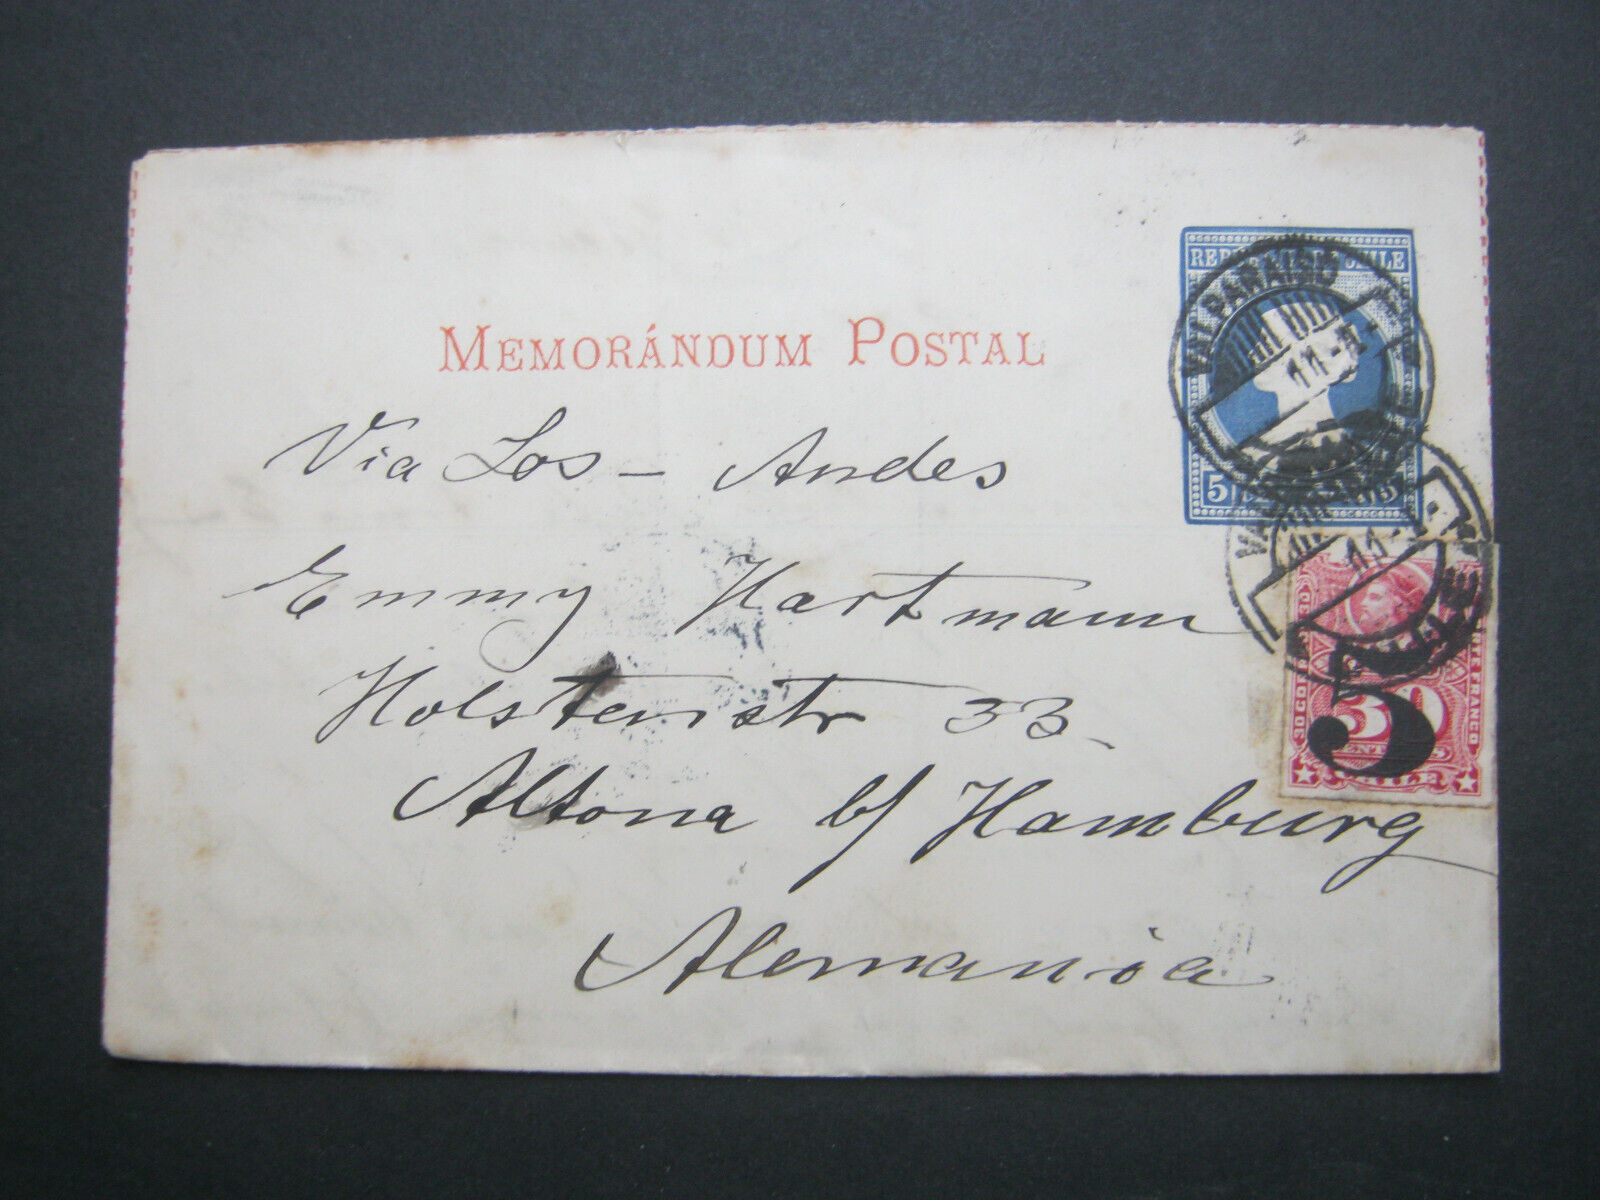 MEMORÁNDUM POSTAL
REPÚBLICA DE CHILE
5
VALPARAISO
11-
Via Los - Andes
Emmy Hartmann
Holstenstr 33.
Altona b/ Hamburg
Alemania
VALPARAISO
11-
CHILE
5
30
CENTAVOS
CHILE